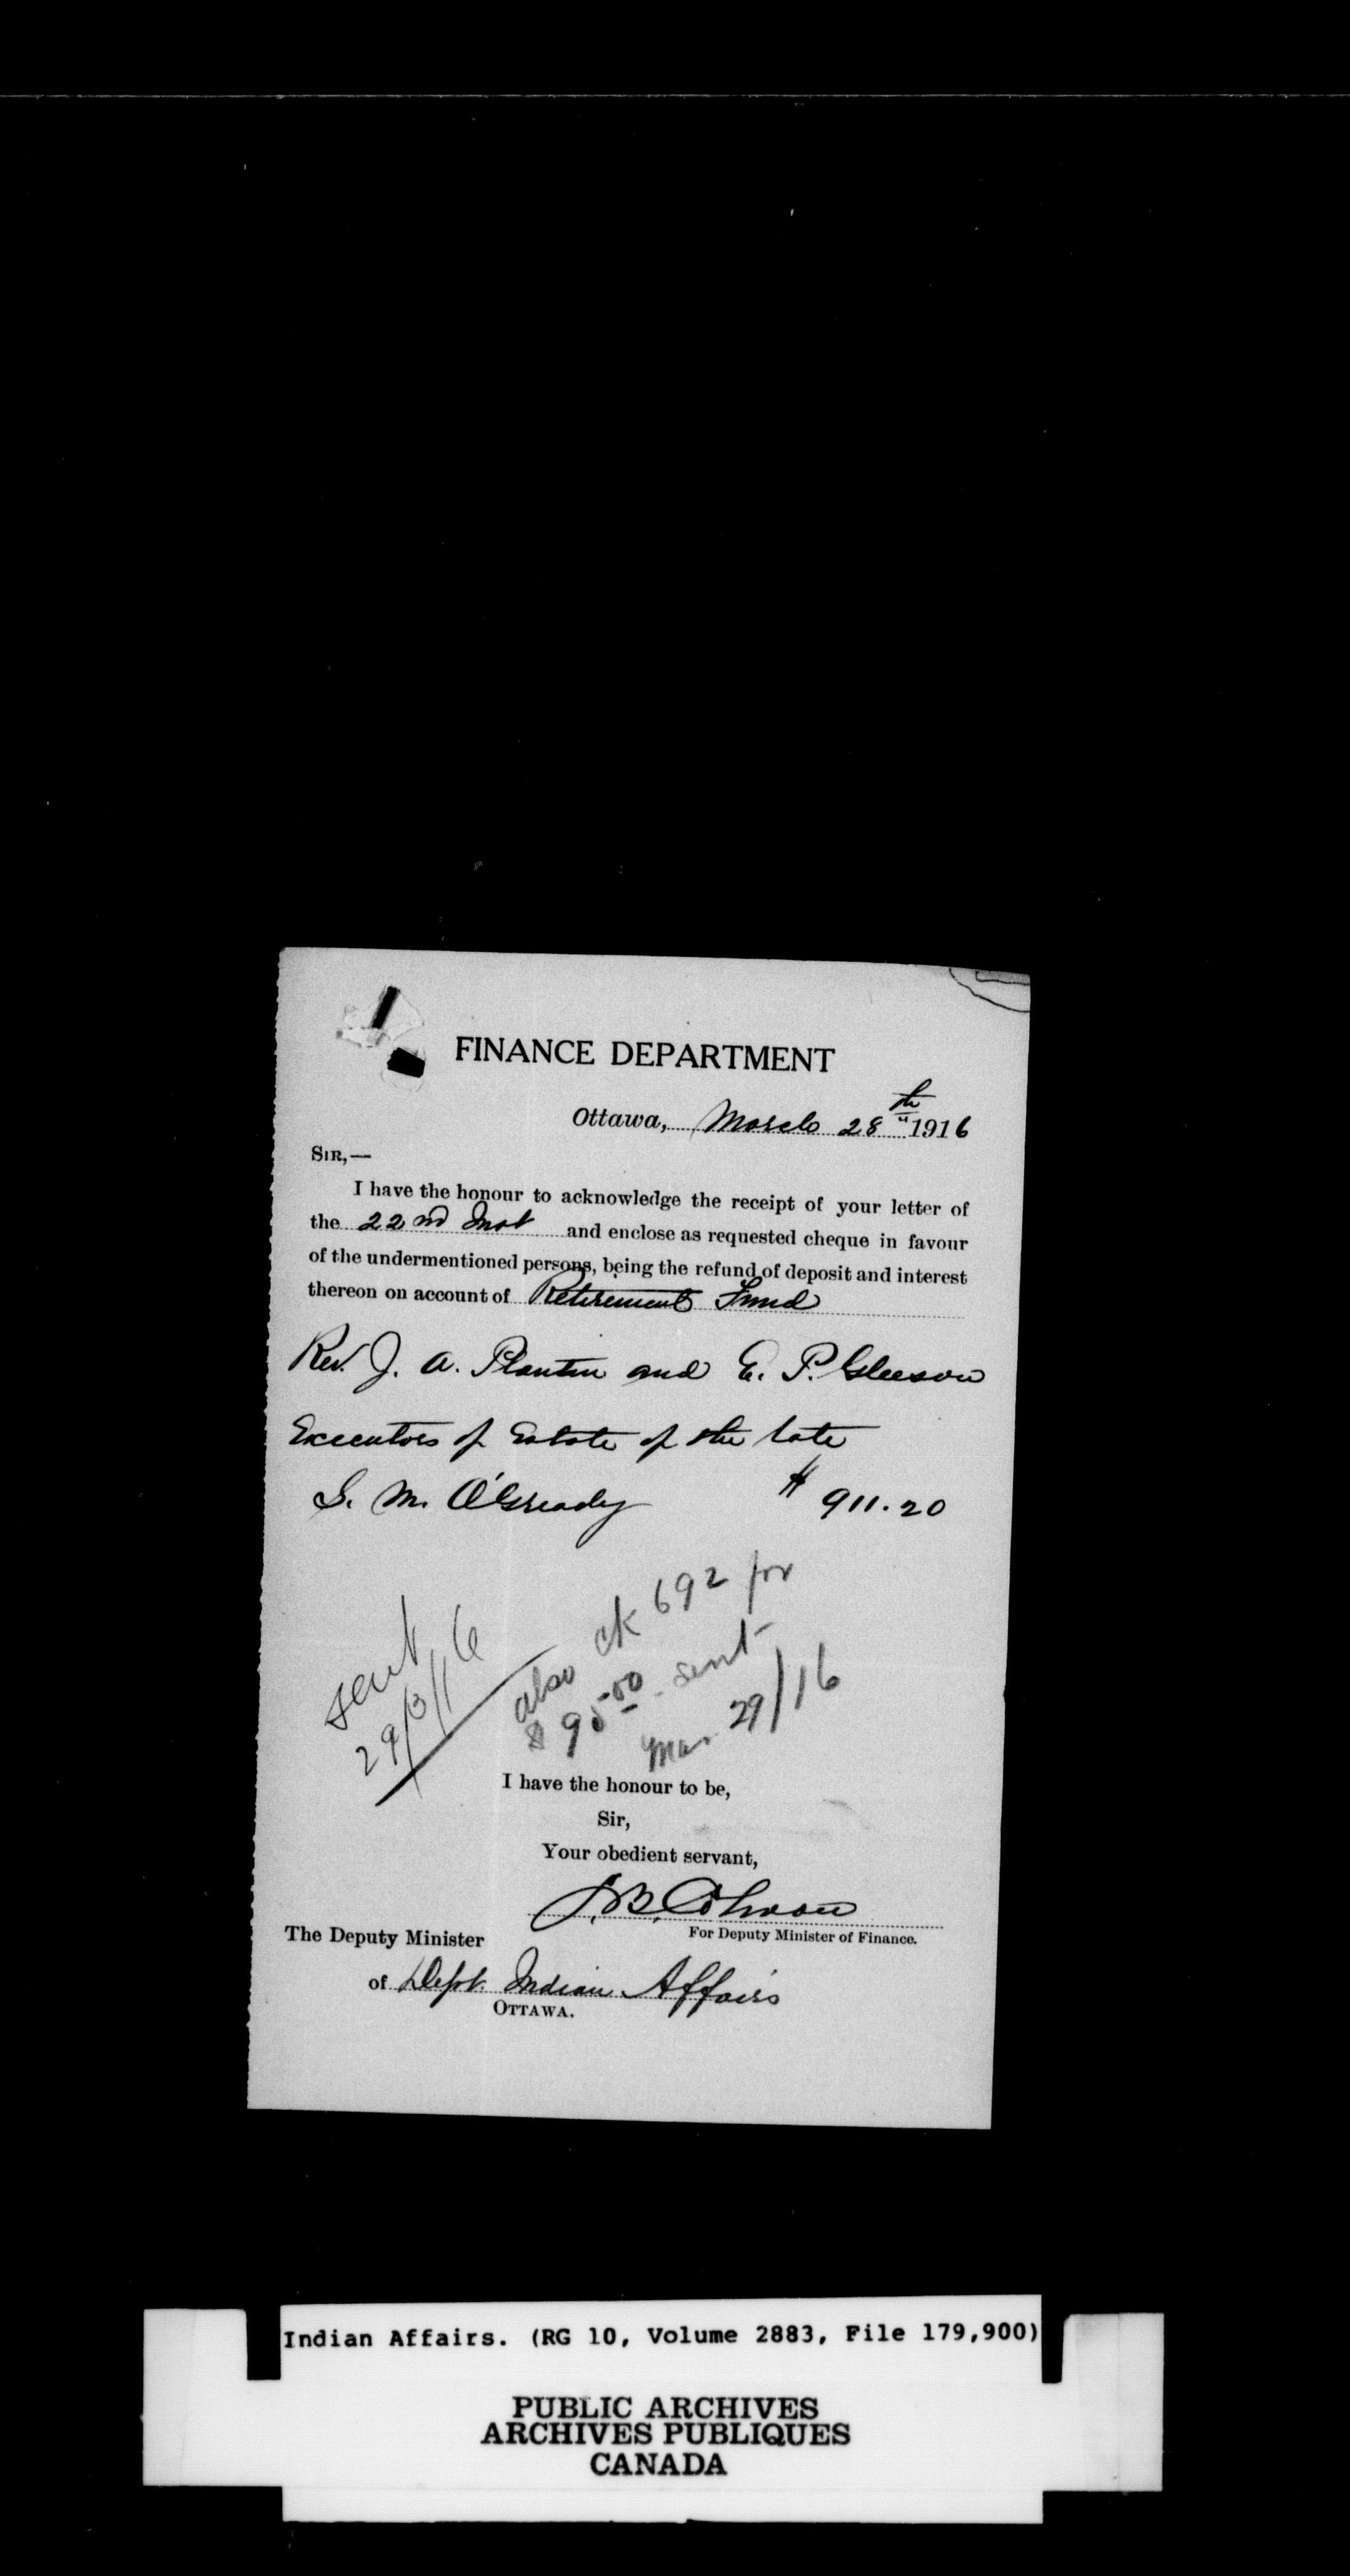 FINANCE DEPARTMENT
Ottawa, March 28th 1916
SIR,—
I have the honour to acknowledge the receipt of your letter of
the 22nd Inst and enclose as requested cheque in favour
of the undermentioned persons, being the refund of deposit and interest
thereon on account of Retirement Fund
Rev. J. A. Plantin and E. P. Gleeson
Executors of Estate of the late
S. M. O'Grady $ 911.20
sent
29/3/16
also ck 692 for
$ 95.00 - sent
Mar. 29/16
I have the honour to be,
Sir,
Your obedient servant,
J. B.
For Deputy Minister of Finance.
The Deputy Minister
of Dept. Indian Affairs
OTTAWA.
Indian Affairs. (RG 10, Volume 2883, File 179,900)
PUBLIC ARCHIVES
ARCHIVES PUBLIQUES
CANADA